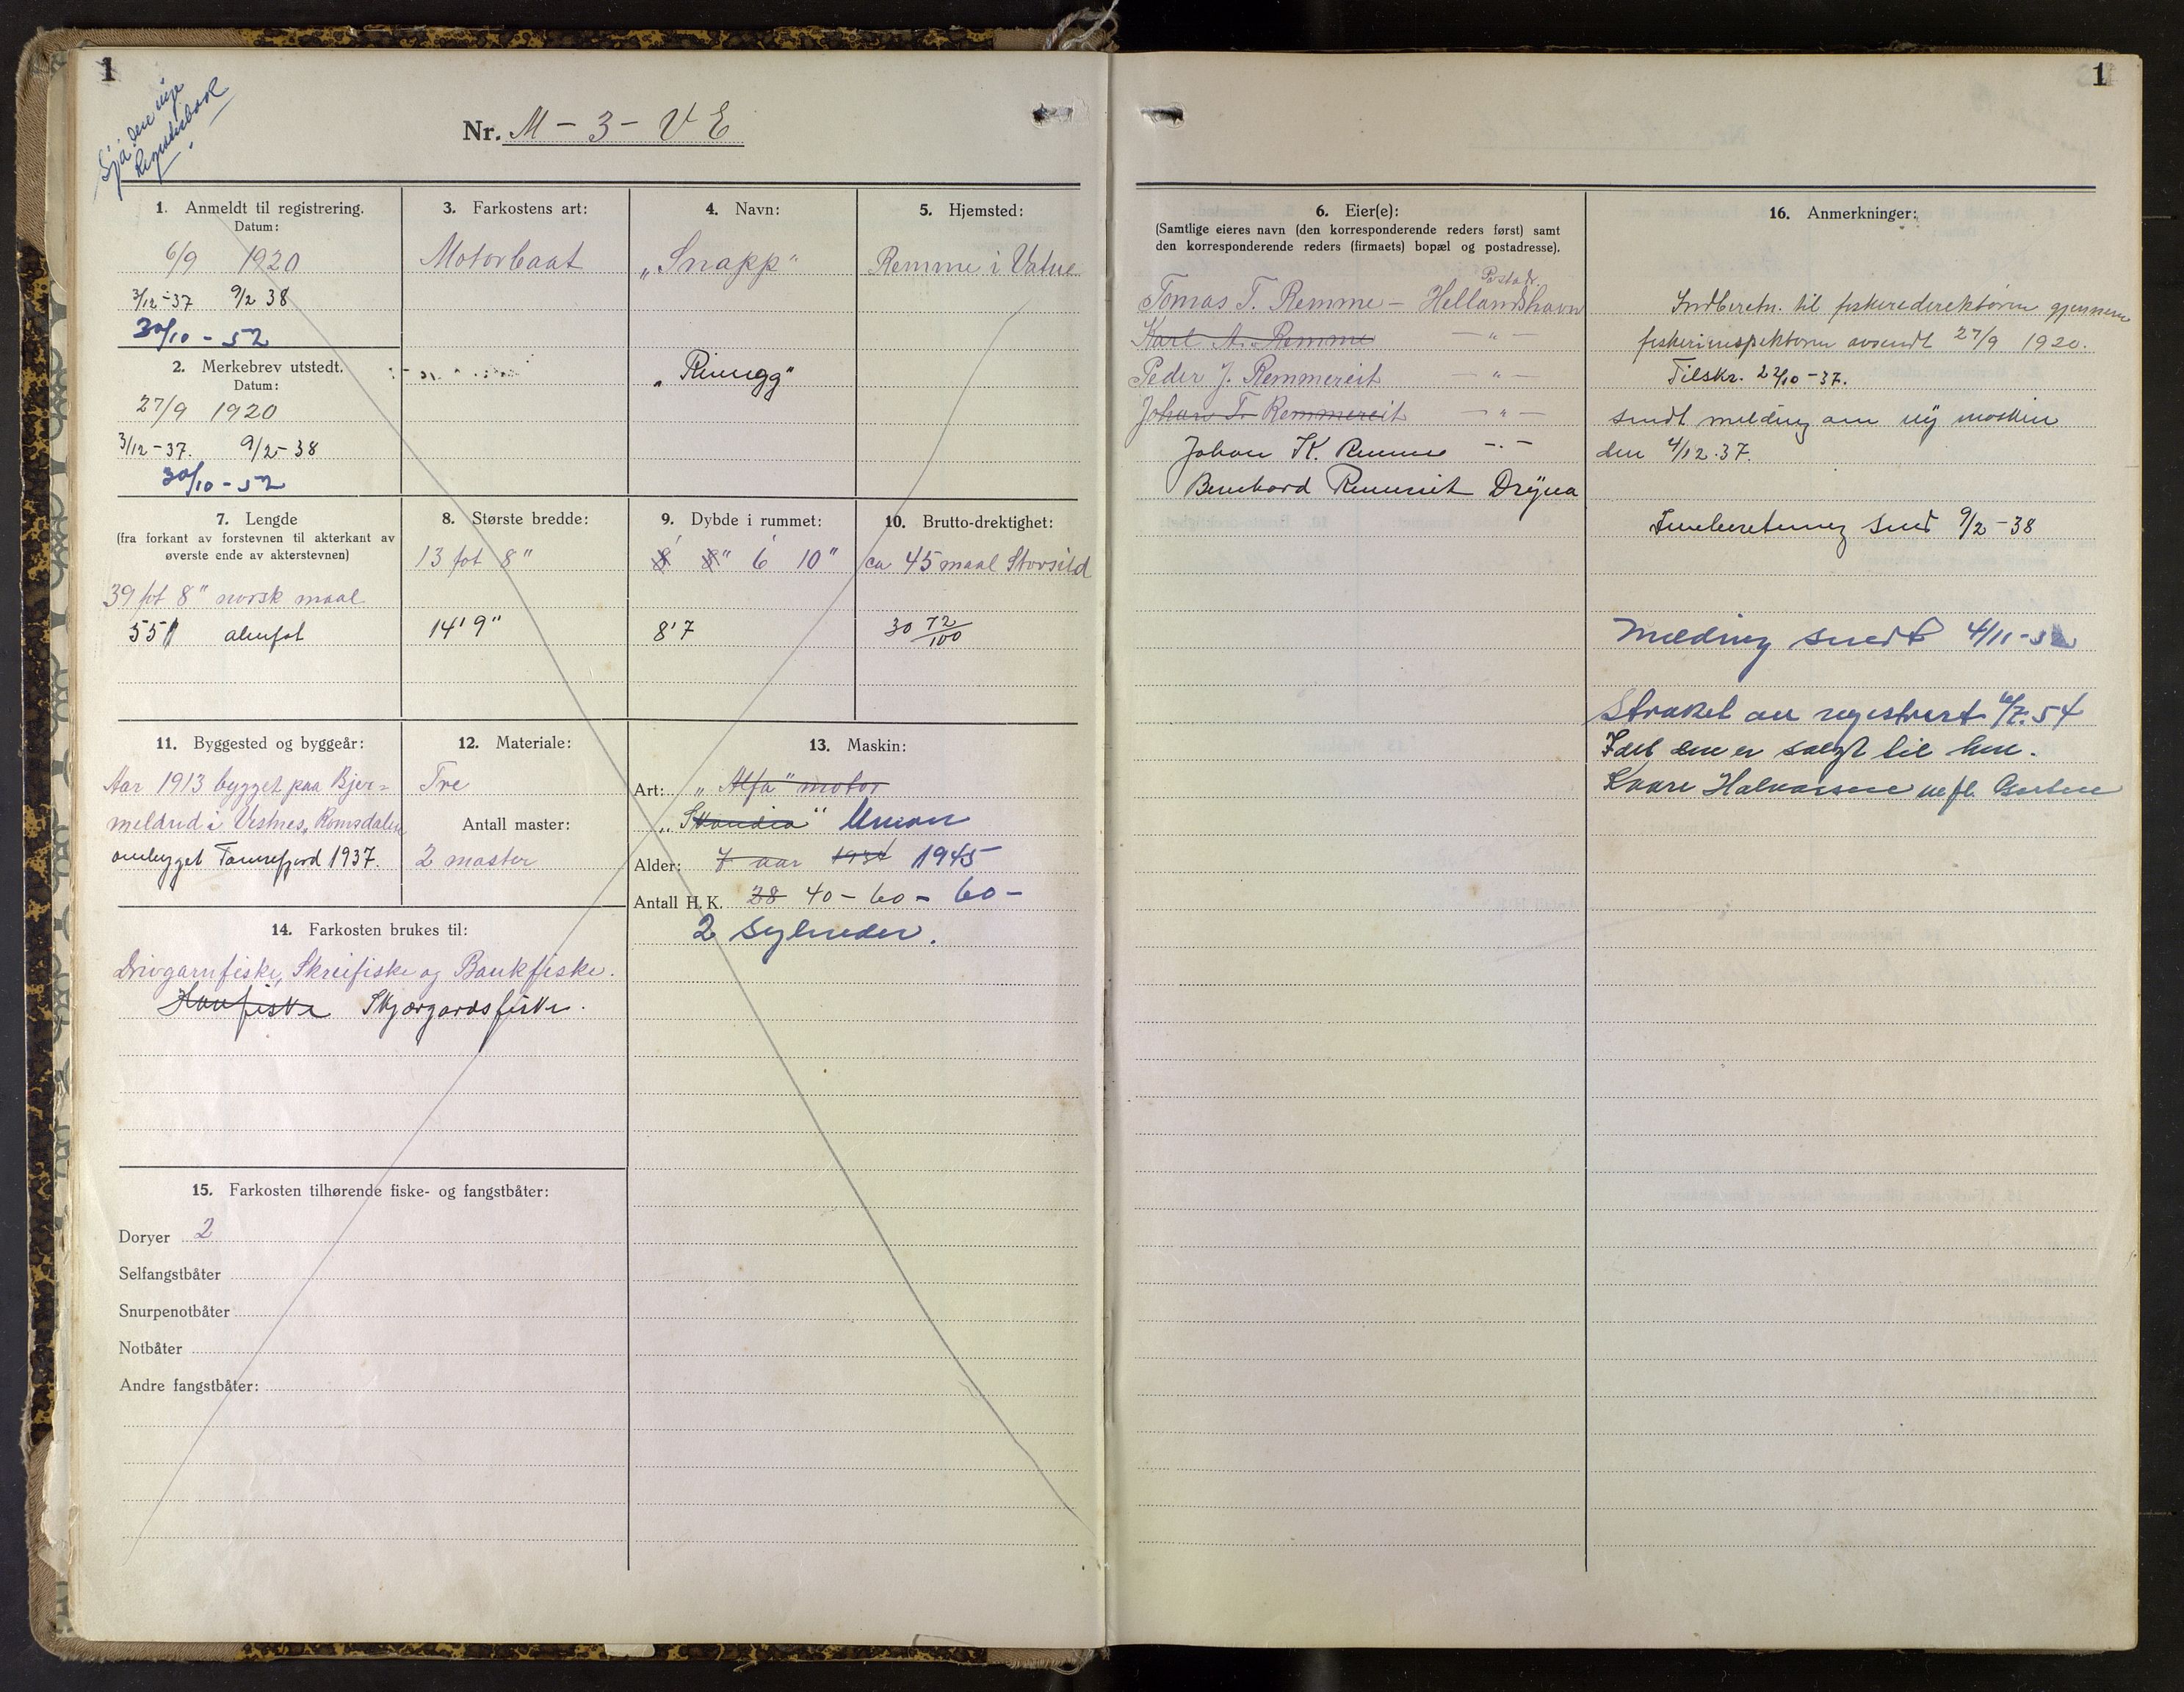 1
Sjå den nye
Registerbok
Nr. M - 3 - VE
1. Anmeldt til registrering.
Datum:
6/9 1920
3/12-37 9/2 38
30/10 - 52
2. Merkebrev utstedt.
Datum:
27/9 1920
3/12-37. 9/2-38
30/10 - 52
3. Farkostens art:
Motorbaat
4. Navn:
„Snapp"
„Rinnegg"
5. Hjemsted:
Remme i Vatne
7. Lengde
(fra forkant av forstevnen til akterkant av
øverste ende av akterstevnen)
39 fot 8" norsk maal
55 alenfot
8. Største bredde:
13 fot 8"
14' 9"
9. Dybde i rummet:
8' 8" 6' 10"
8' 7
10. Brutto-drektighet:
ca 45 maal Storsild
30 72/100
11. Byggested og byggeår:
Aar 1913 bygget paa Bjer-
melund i Vestnes, Romsdalen
ombygget Tomrefjord 1937.
12. Materiale:
Tre
Antall master:
2 master
13. Maskin:
Art: „Alfa" motor
„Skandia" Union
Alder: 7 aar 1937 1945
Antall H.K. 28 40 - 60 - 60 -
2 sylinder.
14. Farkosten brukes til:
Drivgarnfiske, Skreifiske og Bankfiske.
Havfiske Skjærgardsfiske.
15. Farkosten tilhørende fiske- og fangstbåter:
Doryer 2
Selfangstbåter
Snurpenotbåter
Notbåter
Andre fangstbåter:
1
6. Eier(e):
(Samtlige eieres navn (den korresponderende reders først) samt
den korresponderende reders (firmaets) bopæl og postadresse).
Postadr.
Tomas T. Remme - Hellandshavn
Karl A. Remme — " —
Peder J. Remmereit — " —
Johan T. Remmereit — " —
Johan K. Remme - " -
Bernhard Remmereit Dryna
16. Anmerkninger:
Indberetn. til fiskeredirektøren gjennem
fiskeriinspektøren avsendt 27/9 1920.
Tilskr. 22/10-37.
sendt melding om ny maskin
den 4/12.37.
Innberetning send 9/2-38
Melding sendt 4/11-52
Strøket av registeret 10/7.54
Idet den er solgt til hr.
Kaare Halvorsen